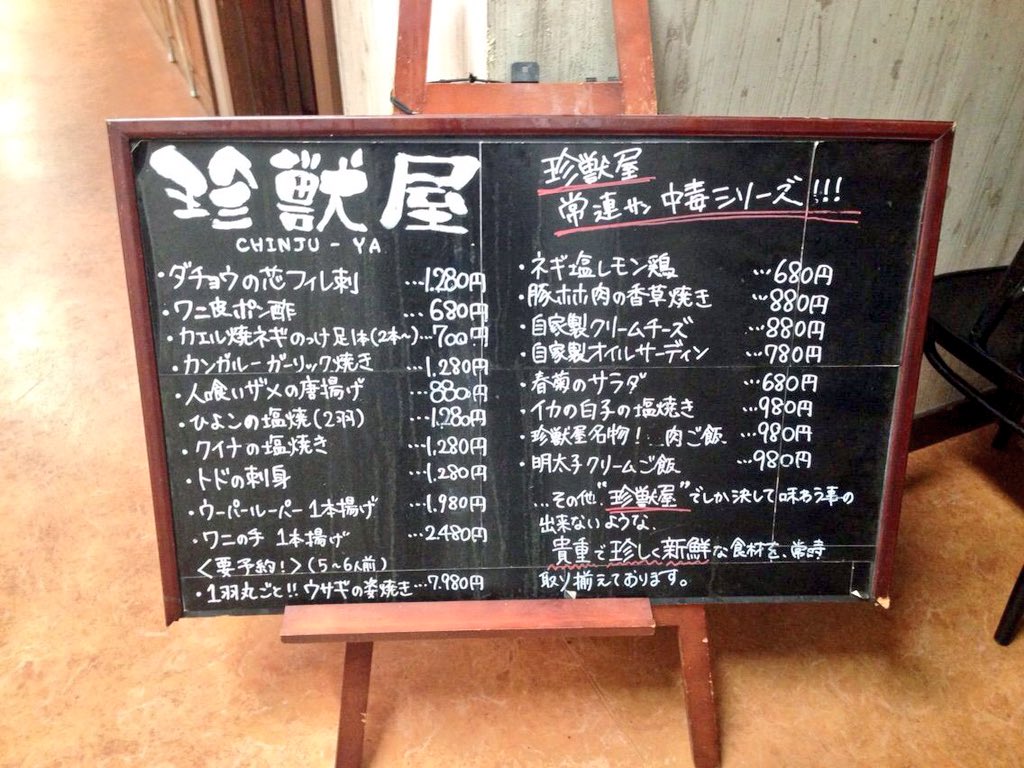 珍獣屋
CHINJU-YA
・ダチョウの芯フィレ刺 …1.280円
・ワニ皮ポン酢 …680円
・カエル焼ネギのっけ足1本(2本〜)…700円
・カンガルーガーリック焼き …1.280円
・人喰いザメの唐揚げ …880円
・ひよこの塩焼(2羽) …1.280円
・クイナの塩焼き …1.280円
・トドの刺身 …1.280円
・ウーパールーパー1本揚げ …1.980円
・ワニの手 1本揚げ …2.480円
<要予約!>(5〜6人前)
・1羽丸ごと!!ウサギの姿焼き…7.980円
珍獣屋
常連サン中毒シリーズ!!!
・ネギ塩レモン鶏 …680円
・豚ホホ肉の香草焼き …880円
・自家製クリームチーズ …880円
・自家製オイルサーディン …780円
・春菊のサラダ …680円
・イカの白子の塩焼き …980円
・珍獣屋名物!…肉ご飯 …980円
・明太子クリームご飯 …980円
…その他"珍獣屋"でしか決して味わう事の
出来ないような、
貴重で珍しく新鮮な食材を、常時
取り揃えております。